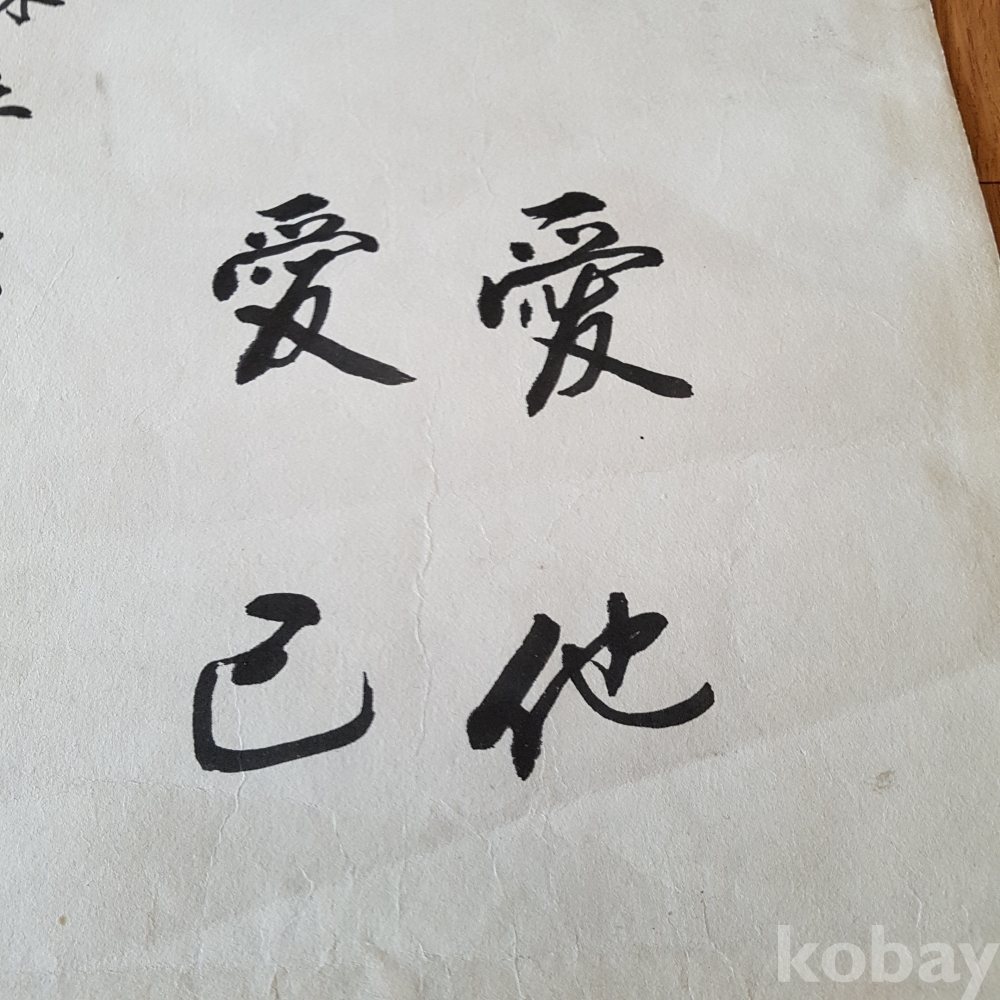 愛他
愛己
kobay